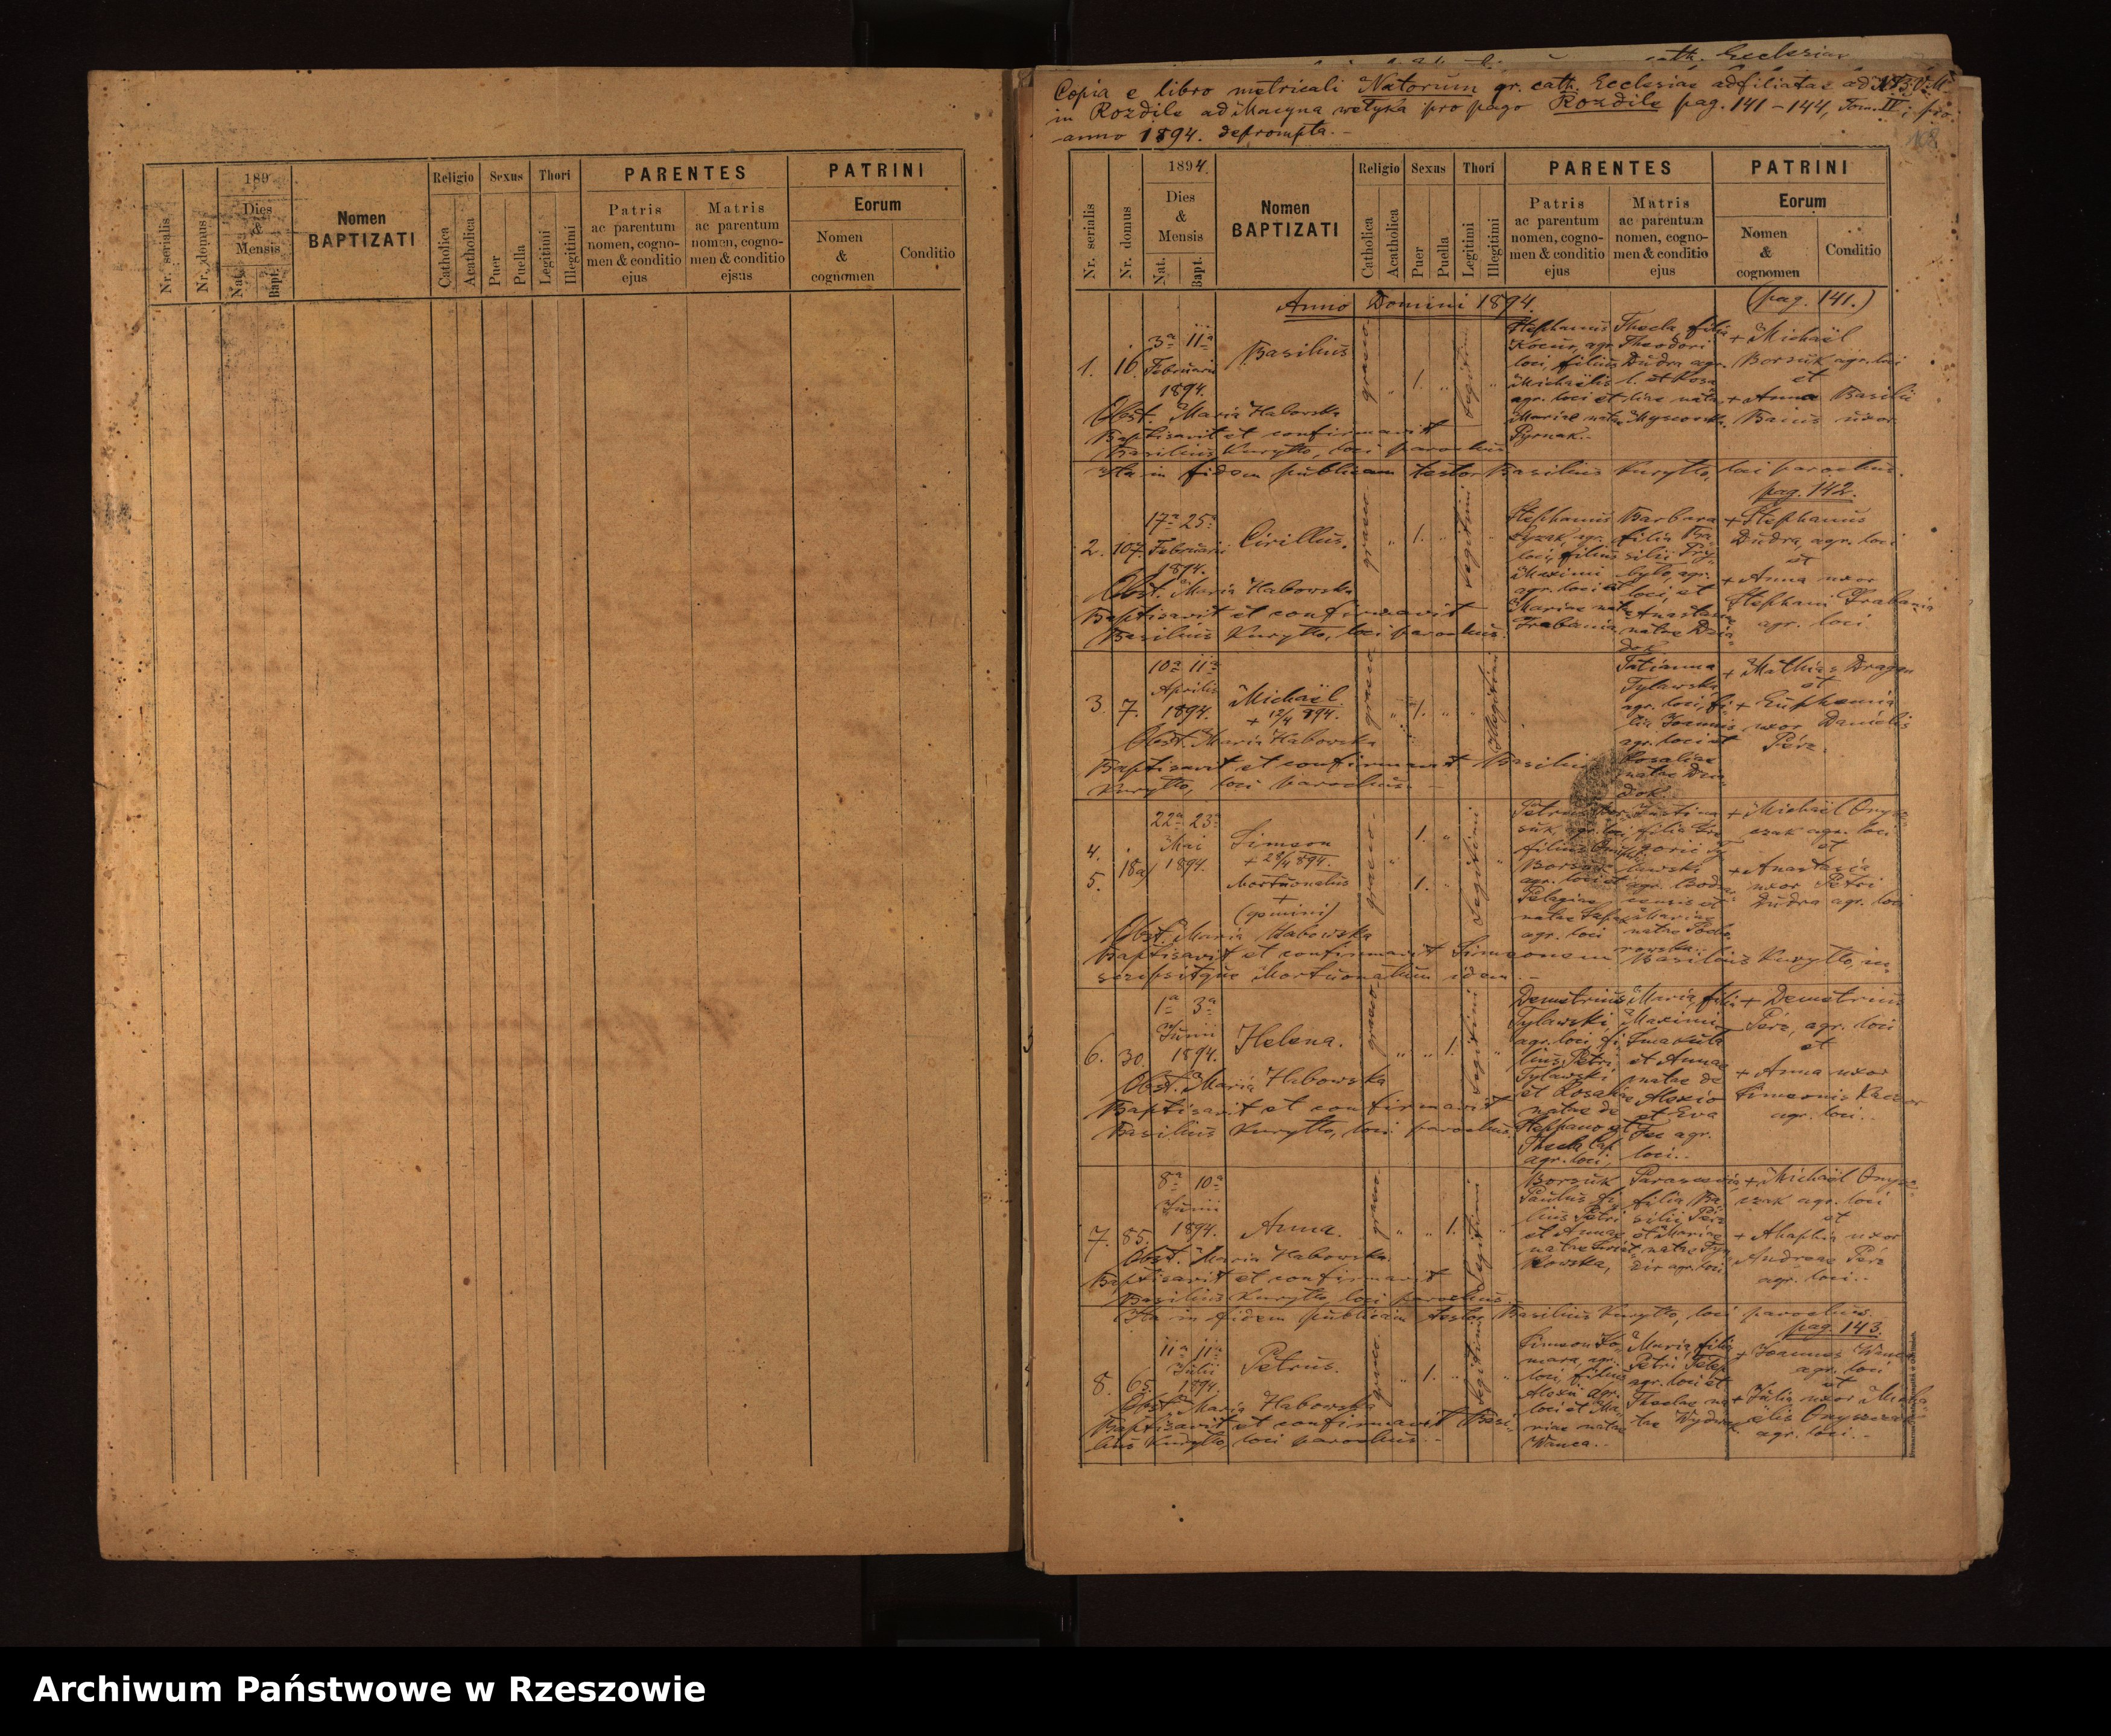 189
Nr. serialis
Nr. domus
Dies
&
Mensis
Nat.
Bapt.
Nomen
BAPTIZATI
Religio
Catholica
Acatholica
Sexus
Puer
Puella
Thori
Legitimi
Illegitimi
PARENTES
Patris
ac parentum
nomen, cogno-
men & conditio
ejus
Matris
ac parentum
nomen, cogno-
men & conditio
ejsus
PATRINI
Eorum
Nomen
&
cognomen
Conditio
Copia e libro metricali Natorum gr. cath. Ecclesiae adfiliatae ad
in Rozdile ad Macyna wełyka pro pago Rozdile pag. 141-144, Tom. IV; pro
anno 1894. deprompta.-
1894.
Nr. serialis
Nr. domus
Dies
&
Mensis
Nat.
Bapt.
Nomen
BAPTIZATI
Religio
Catholica
Acatholica
Sexus
Puer
Puella
Thori
Legitimi
Illegitimi
PARENTES
Patris
ac parentum
nomen, cogno-
men & conditio
ejus
Matris
ac parentum
nomen, cogno-
men & conditio
ejus
PATRINI
Eorum
Nomen
&
cognomen
Conditio
Anno Domini 1894. (pag. 141.)
1. 16.
3a 11a
Februarii
1894.
Basilius
graeco
1.
Legitimi
Stephanus
Kocur, agr.
loci, filius
Michaëlis
agr. loci et
Mariae natae
Pyrnak.-
Thecla, filia
Theodori
Dudra agr.
l. et Rosa
liae natae
+ Michaël
Borsuk agr. loci
et
+ Anna Basilii
Baius uxor
Obst. Maria Habowska
Baptisavit et confirmavit
Basilius Kuryłło, loci parochus
Ita in fidem publicam testor Basilius Kuryłło, loci parochus.
pag. 142.
2. 107.
17a 25a
Februarii
1894.
Cirillus.
graeco
1.
Legitimi
Stephanus
agr.
loci, filius
Maximi
agr. loci et
Mariae natae
Hrabania
Barbara
filia Ba-
silii Pry-
było, agr.
loci, et
Anastasiae
natae Dzia-
dok
+ Stephanus
Dudra, agr. loci
et
+ Anna uxor
Stephani Hrabania
agr. loci
Obst. Maria Habowska
Baptisavit et confirmavit
Basilius Kuryłło, loci parochus.
3. 7.
10a 11a
Aprilis
1894.
Michaël
+ 12/4 894.
graeco
1.
Illegitimi
Tatianna
Tylawska
agr. loci, fi-
lia Joannis
agr. loci et
Rosaliae
natae Dzia-
dok.
+ Mathias Dragan
et
+ Euphemia
uxor Danielis
Pérz.
Obst. Maria Habowska
Baptisavit et confirmavit Basilius
Kuryłło, loci parochus.-
4.
5.
18a/
22a 23a
Mai
1894.
Simeon
Mortuonatus
+
(gemini)
graeco
1.
1.
Legitimi
Petrus Bor-
suk, agr. loci,
filius
Borsuk
agr. loci et
Pelagiae
natae
agr. loci
Justina
filia Gre-
gorii Ty-
lawski
agr.
et
Mariae
natae Fedo-
rowska.-
+ Michaël Onys-
czak agr. loci
et
+ Anastasia
uxor Petri
Dudra agr. loci
Obst. Maria Habowska
Baptisavit et confirmavit Simeonem Basilius Kuryłło, in-
scripsitque Mortuonatum idem.-
6. 30.
1a 3a
Junii
1894.
Helena.
graeco
1.
Legitimi
Demetrius
Tylawski,
agr. loci, fi-
lius Petri
Tylawski
et Rosaliae
natae de
Stephano et
Thecla
agr. loci,
Maria, filia
Maximi
et Annae
natae de
Alexio
et Eva
Fec agr.
loci.-
+ Demetrius
Pérz, agr. loci
et
+ Anna uxor
Simeonis
agr. loci.-
Obst. Maria Habowska
Baptisavit et confirmavit
Basilius Kuryłło, loci parochus.
7. 85.
8a 10a
Junii
1894.
Anna.
graeco
1.
Legitimi
Borsuk
Paulus fi-
lius Petri
et Annae
natae
Parascevia,
filia Ba-
silii Pérz
et Mariae
natae
agr. loci
+ Michaël Onys-
czak agr. loci
et
+ Ahaphia uxor
Andreae Pérz
agr. loci.-
Obst. Maria Habowska.
Baptisavit et confirmavit
Basilius Kuryłło, loci parochus.
Ita in fidem publicam testor Basilius Kuryłło, loci parochus.
pag. 143.
8. 65.
11a 11a
Julii
1894.
Petrus.
graeco
1.
Legitimi
Simeon
agr.
loci, filius
Alexii agr.
loci et Ma-
riae natae
Wanca.-
Maria, filia
Petri
agr. loci et
Theclae na-
tae
+ Joannes Wanca
agr. loci
et
+ Julia uxor Micha-
ëlis Onysczak
agr. loci.-
Obst. Maria Habowska
Baptisavit et confirmavit Basi-
lius Kuryłło, loci parochus.-
Archiwum Państwowe w Rzeszowie